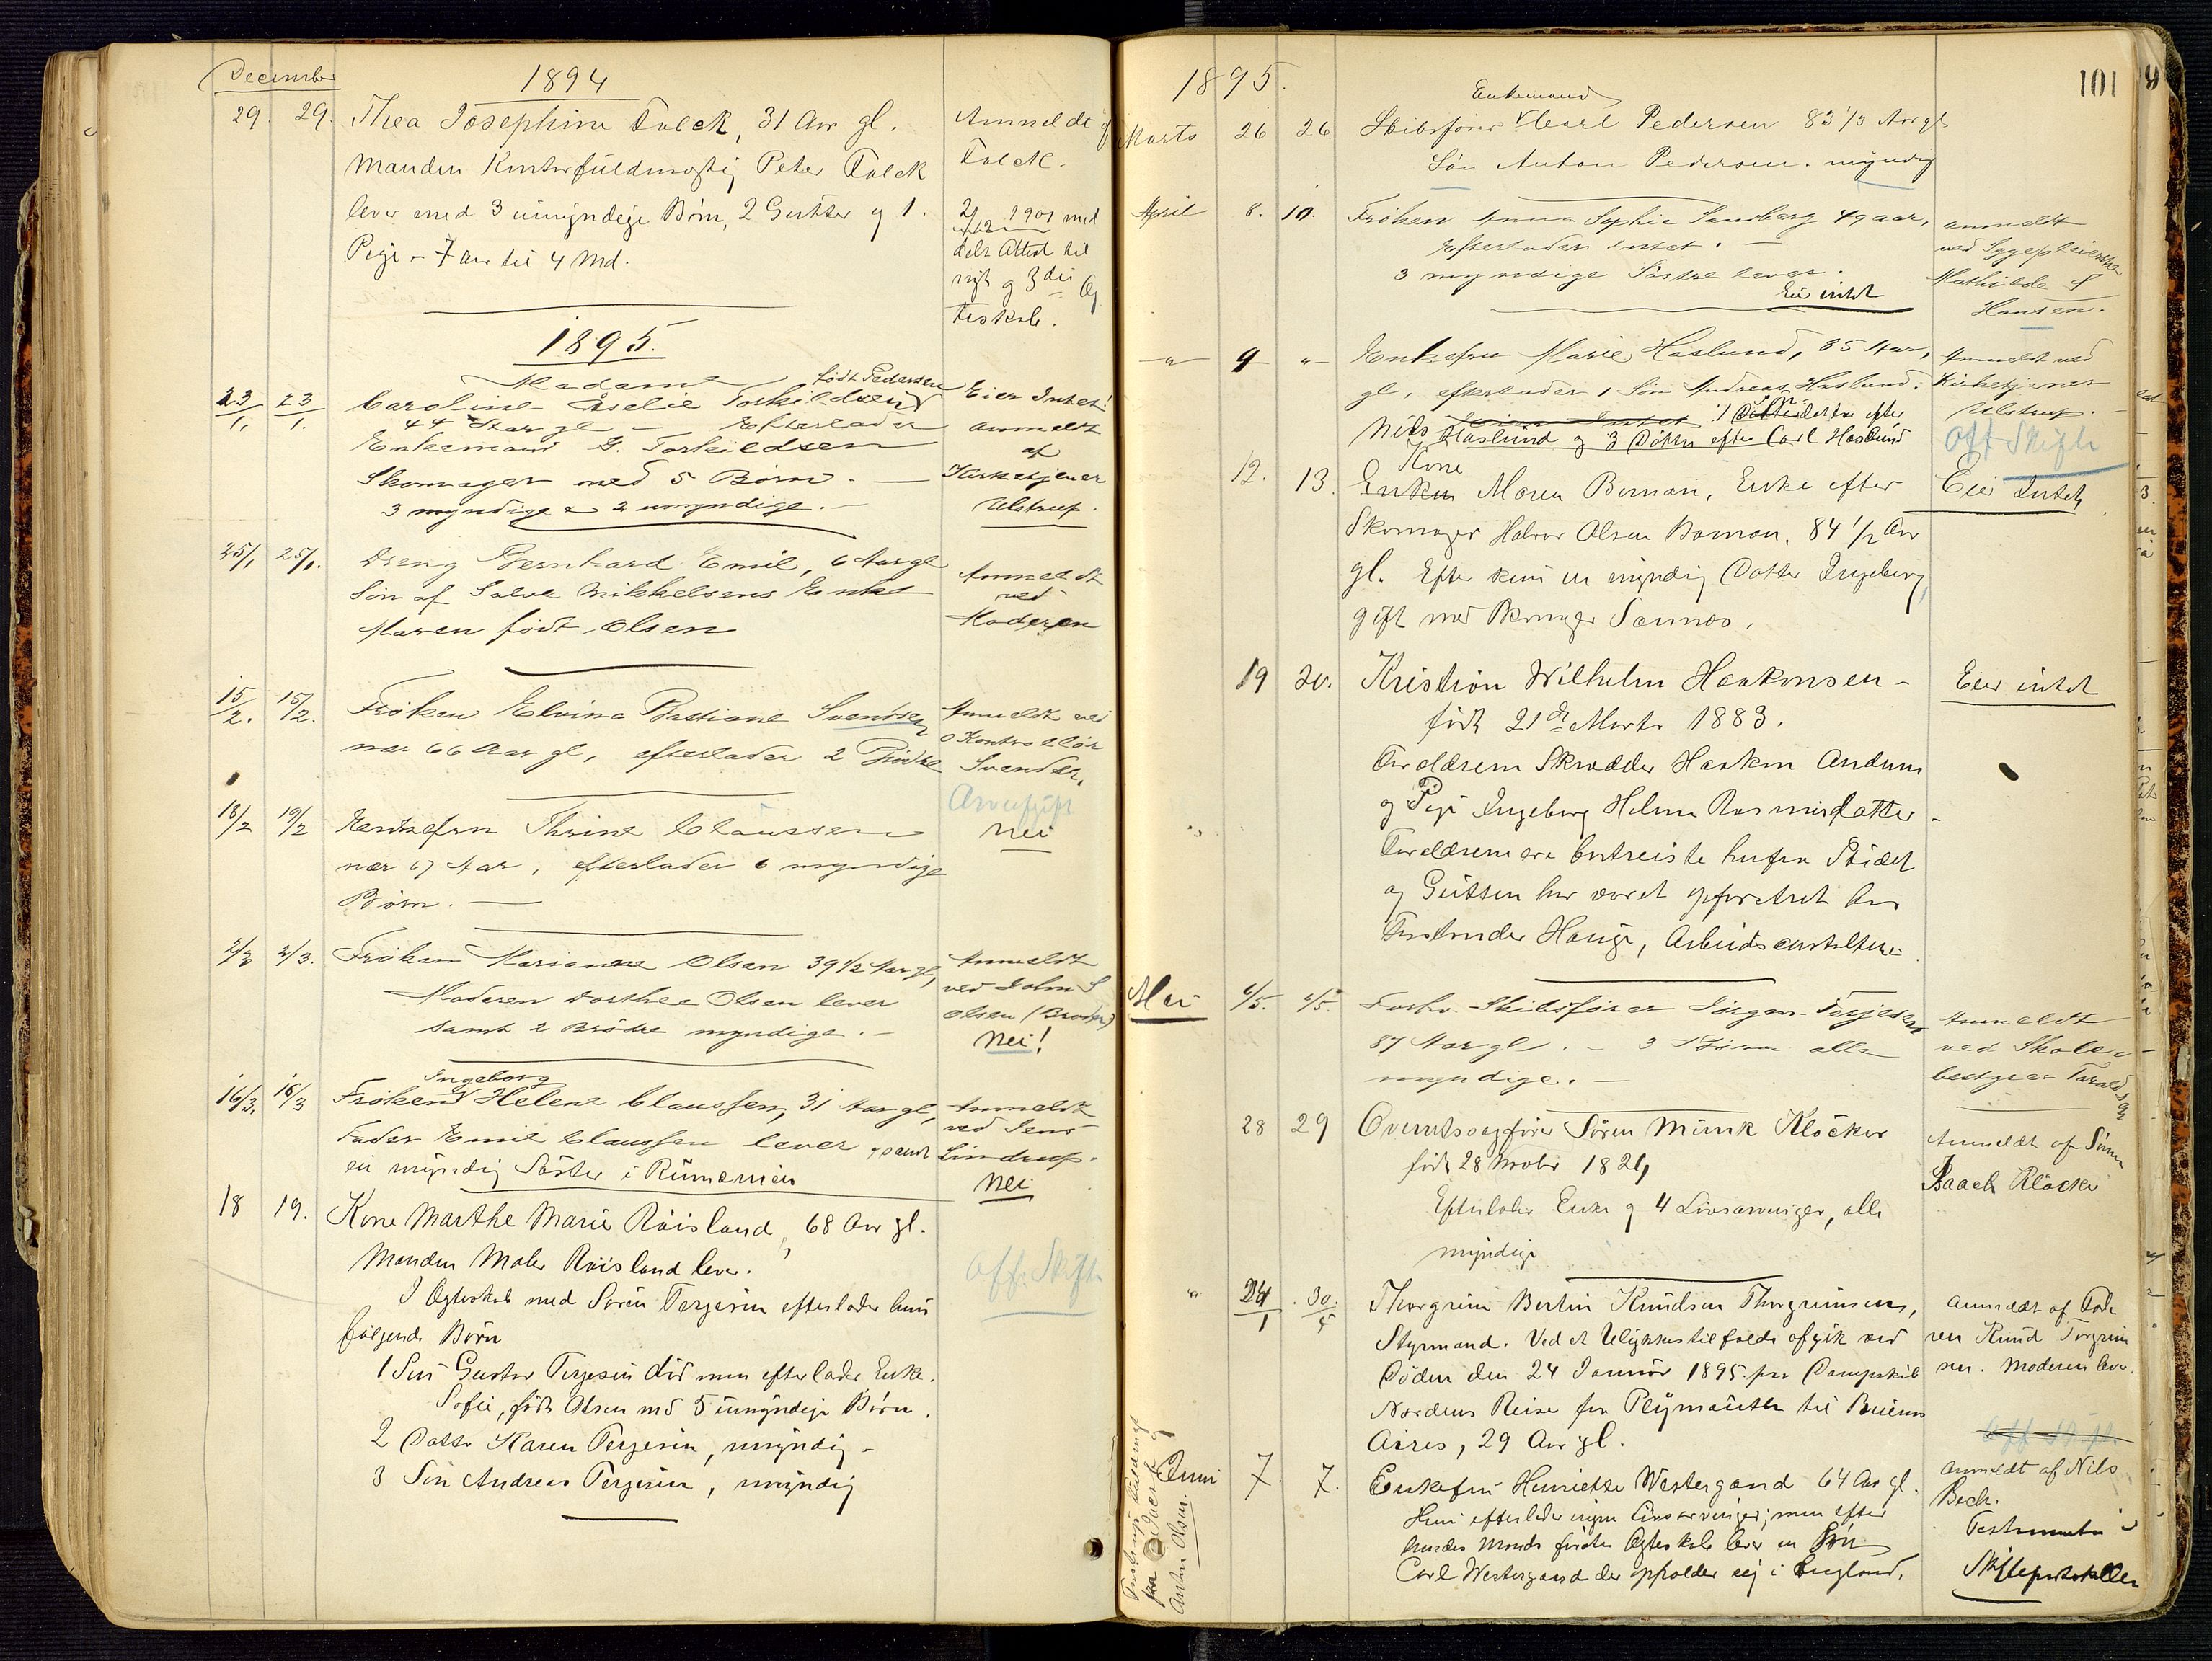 December
1894
29. 29. Thea Josephine Falck, 31 Aar gl.
Manden Kontorfuldmægtig Peter Falck
lever med 3 umyndige Børn, 2 Gutter og 1.
Pige - 7 Aar til 4 Md.
Anmeldt af
Falck.
2/12 1901 med
delt Attest til
nyt og 3die Æg
teskab.
1895.
Madame født Pedersen
23/1, 23/1. Caroline Aselie Torkildsen
44 Aar gl - Efterlader
Enkemand G. Torkildsen
Skomager med 5 Børn. -
3 myndige & 2 umyndige. -
Eier Intet!
anmeldt
af
Kirketjener
Ulstrup.
25/1 25/1. Dreng Bernhard Emil, 6 Aar gl
Søn af Salve Mikkelsens Enke
Maren født Olsen
Anmeldt
ved
Moderen
15/2. 15/2. Frøken Elvina Bastiane Svendsen
nær 66 Aar gl, efterlader 2 Brødre
Anmeldt ved
Kontrollør
Svendsen.
Arveafgift
18/2 19/2 Enkefru Thrine Claussen
nær 67 Aar, efterlader 6 myndige
Børn. -
Nei
2/3 2/3. Frøken Marianne Olsen 39 1/2 Aar gl,
Moderen Dorthea Olsen lever
samt 2 Brødre myndige. -
Anmeldt
ved John S
Olsen (Broder)
Nei!
Ingeborg
16/3. 16/3 Frøken Helene Claussen, 31 Aar gl,
Fader Emil Claussen lever, samt
en myndig Søster i Rumænien
Anmeldt
ved Jens
Lindrup.
Nei
18 19. Kone Marthe Marie Røisland, 68 Aar gl.
Manden Maler Røisland lever.
I Ægteskab med Søren Terjesen efterlader hun
følgende Børn
1 Søn Gustav Terjesen død men efterlader Enke
Sofie, født Olsen med 5 umyndige Børn.
2 Datter Karen Terjesen, myndig -
3 Søn Andreas Terjesen, myndig
Off. Skifte
1895.
101
Enkemand
Marts 26 26 Skibsfører Carl Pedersen 83 1/3 Aar gl
Søn Anton Pedersen. myndig
April 8. 10. Frøken Anna Sophie Sandberg 49 aar,
Efterlader Intet. -
3 myndige Søstre lever.
Eier intet
anmeldt
ved Sygepleierske
Mathilde S
Hansen.
- " - 9 - " - Enkefru Marie Haslund, 85 Aar,
gl, efterlader 1 Søn Andreas Haslund.
1 Sønnedatter efter
Nils Haslund og 3 Døttre efter Carl Haslund
Anmeldt ved
Kirketjener
Ulstrup. -
Off Skifte
Kone
12. 13. Enken Maren Boman, Enke efter
Skomager Halvor Olsen Boman, 84 1/2 Aar
gl. Efter kun en myndig Datter Ingeborg,
gift med Skomager Sannæs.
Eier Intet,
19 20. Kristian Wilhelm Haakonsen -
født 21de Marts 1883.
Forældrene Skrædder Haakon Andersen
og Pige Ingeborg Helene Rasmusdatter -
Forældrene ere bortreiste herfra Stedet
og Gutten har været opfostret hos
Forstander Hauge, Arbeidsanstalten.
Eier intet
Mai 4/5. 4/5. Forhv. Skibsfører Jørgen Terjesen
87 Aar gl. - 3 Børn alle
myndige. -
Anmeldt
ved Skole-
bestyrer Taraldsen
28 29 Overretssagfører Søren Munk Kløcker
født 28 Novbr 1824
Efterlader Enke og 4 Livsarvinger, alle
myndige
Anmeldt af Sønnen
Isaach Kløcker
" 24/1 30/5 Thorgrim Bertin Knudsen Thorgrimsen,
Styrmand. Ved et Ulykkestilfælde afgik ved
Døden den 24 Januar 1895. paa Dampskib
Nordens Reise fra Plymouth til Buenos
Aires, 29 Aar gl.
anmeldt af Fade
ren Knud Torgrim
sen. Moderen lever.
Off Skifte
Juni 7. 7. Enkefru Henriette Westergaard 64 Aar gl.
Hun efterlader ingen Livsarvinger; men efter
hendes Mands første Ægteskab lever en Søn
Carl Westergaard der opholder sig i England.
anmeldt af Nils
Bech.
Testamente i
Skifteprotokollen
Anton Olsen.